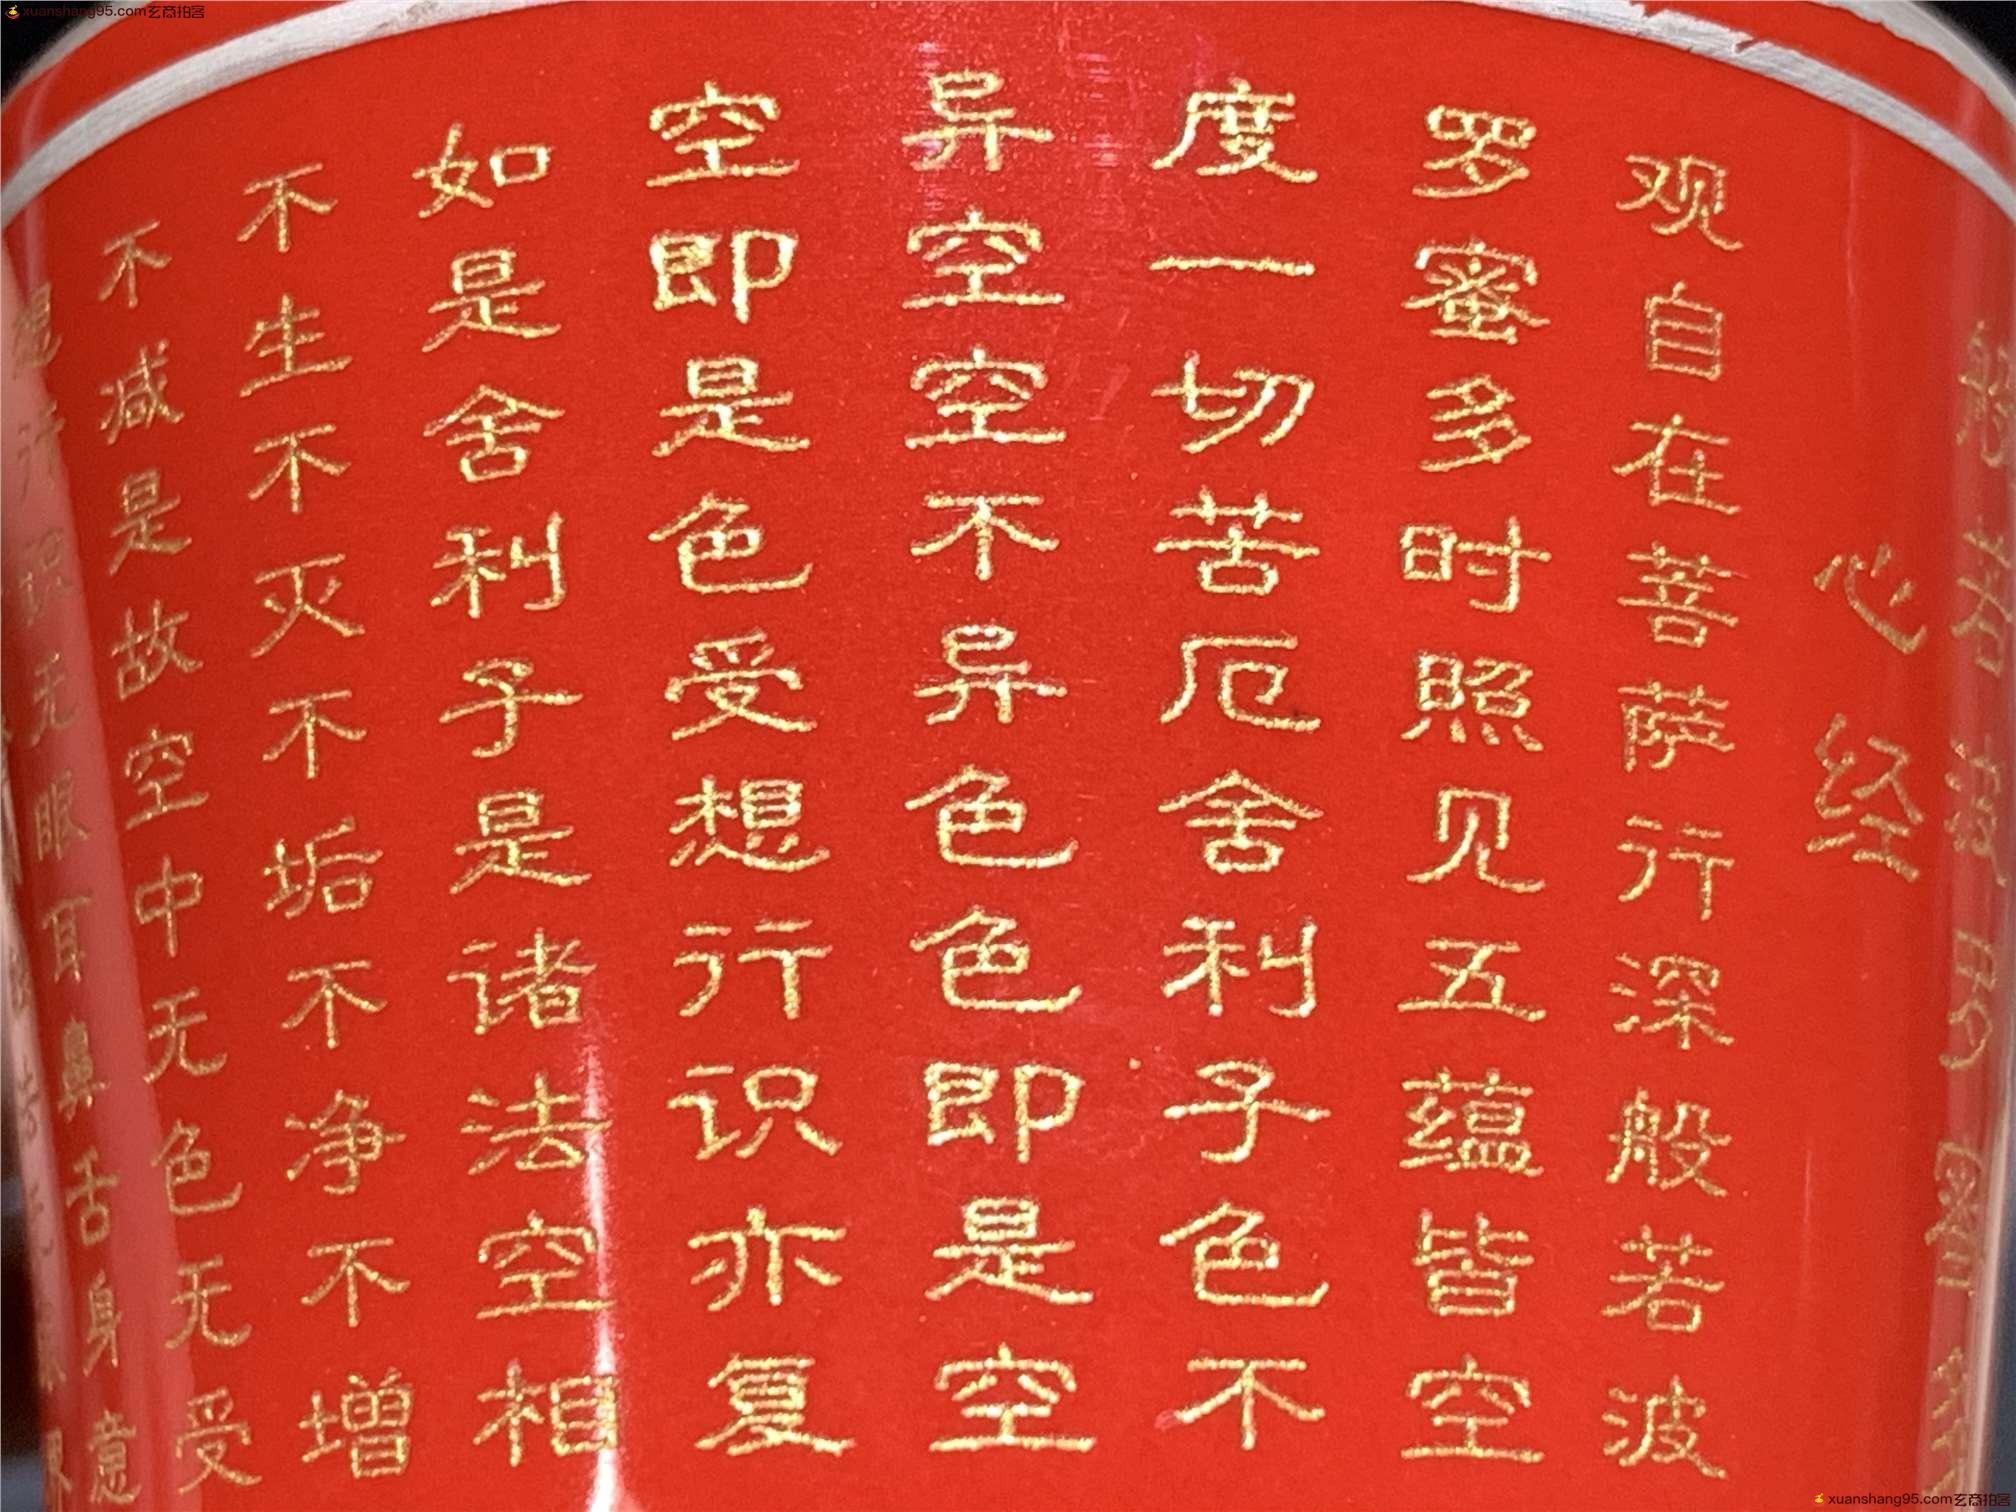 xuanshang95.com玄商拍客
心经
观自在菩萨行深般若波
罗蜜多时照见五蕴皆空
度一切苦厄舍利子色不
异空空不异色色即是空
空即是色受想行识亦复
如是舍利子是诸法空相
不生不灭不垢不净不增
不减是故空中无色无受
想行识无眼耳鼻舌身意
xuanshang95.com玄商拍客